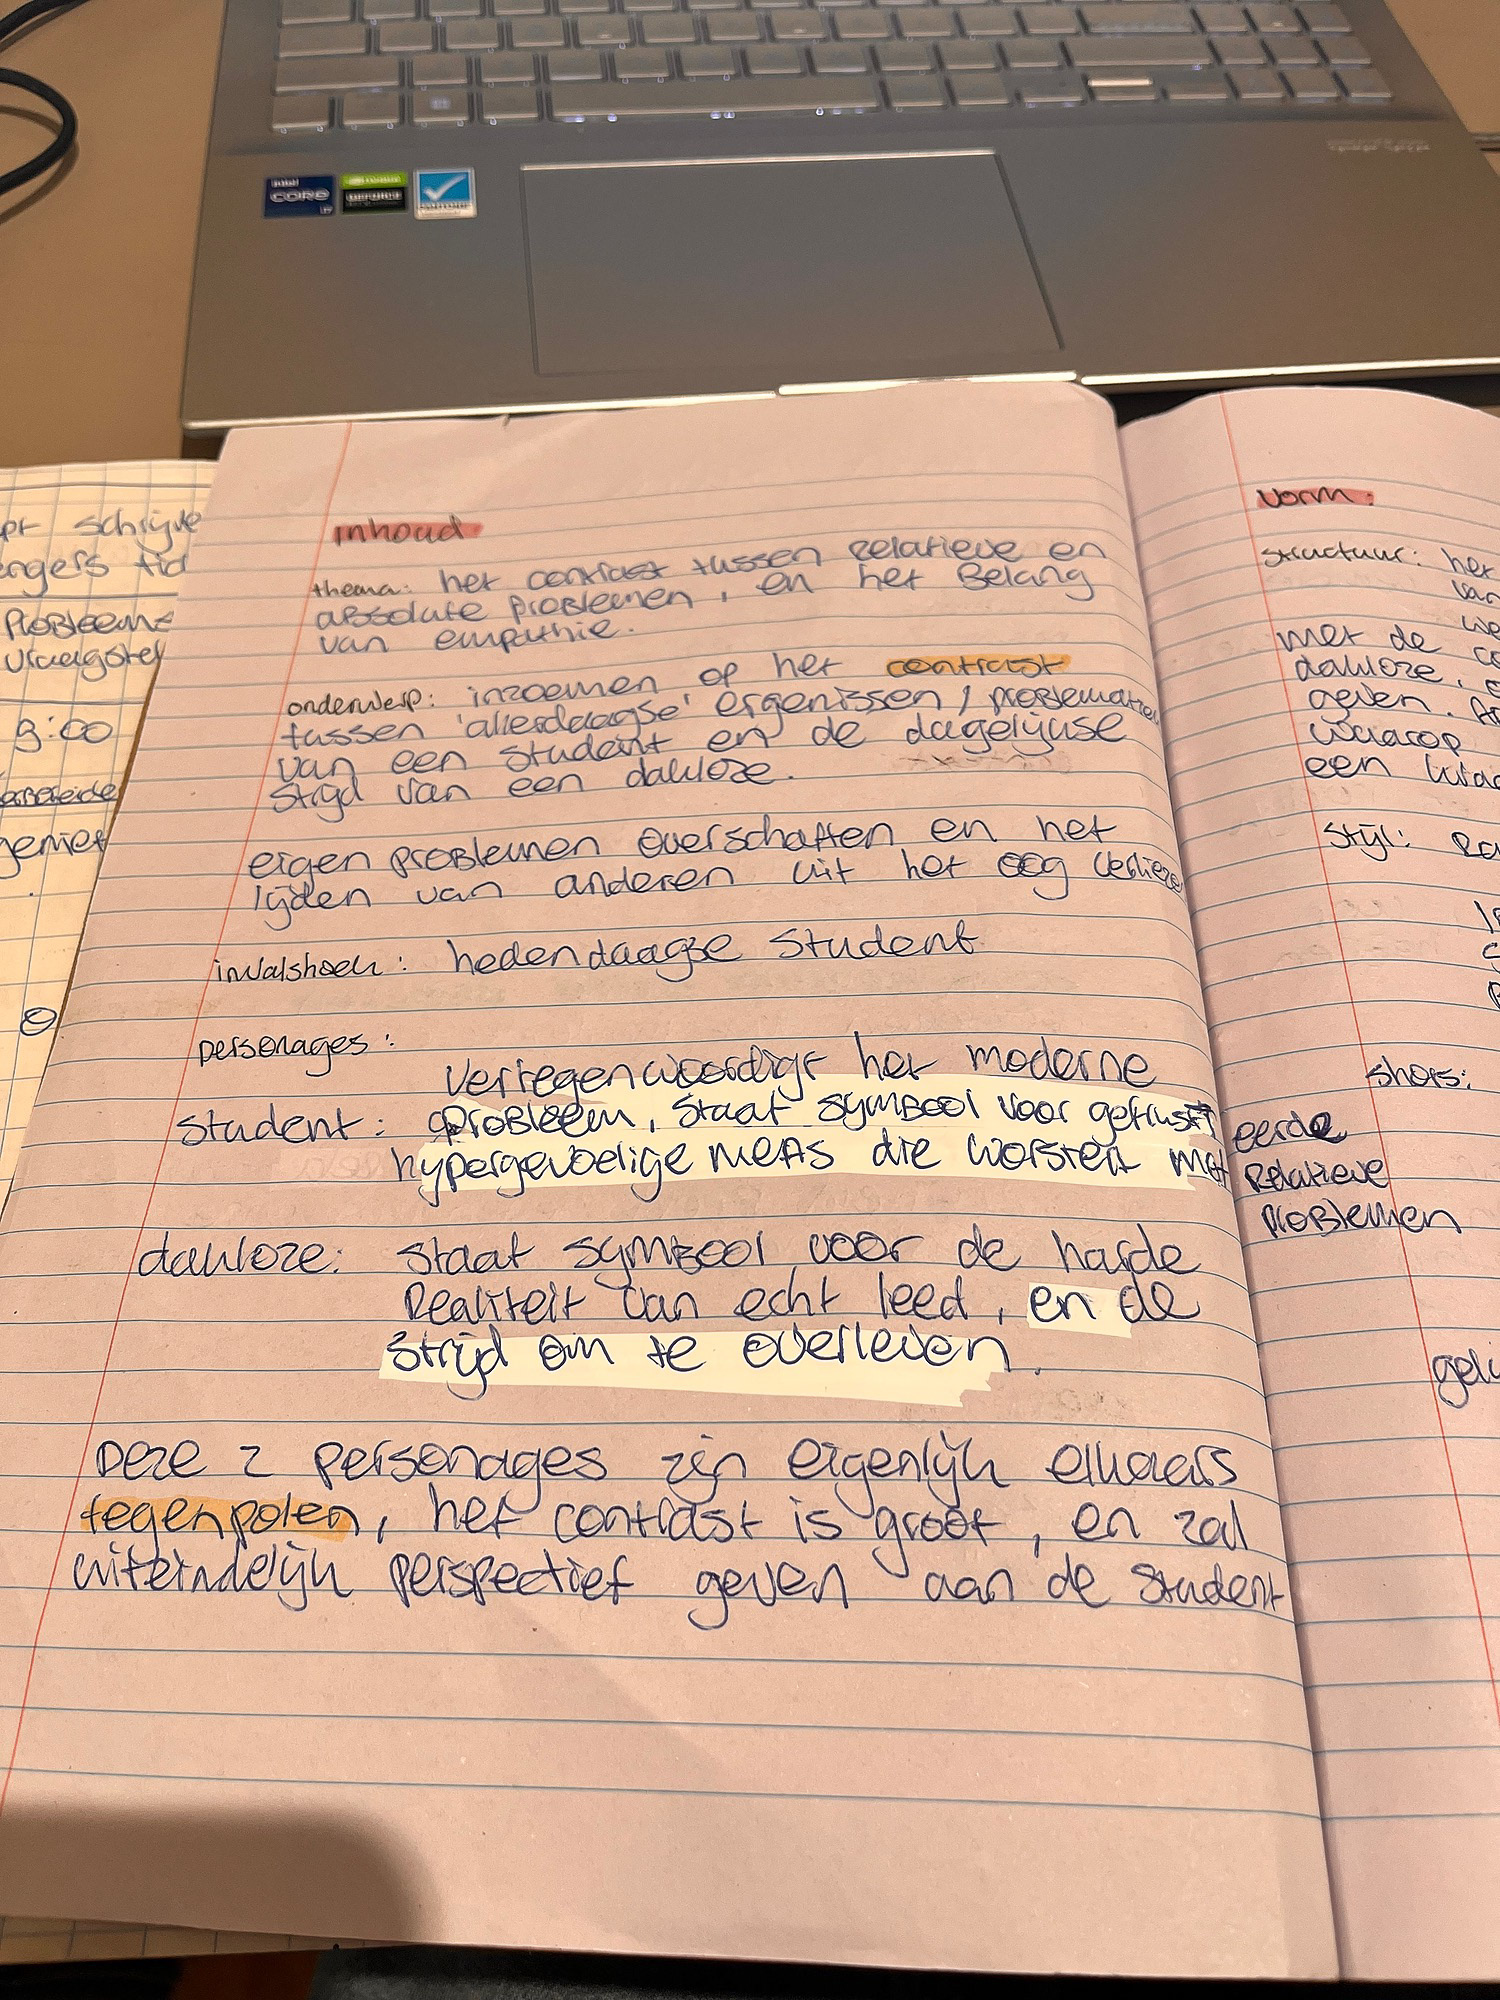 intel
CORE
inhoud
thema: het contrast tussen relatieve en
absolute problemen, en het Belang
van empathie.
onderwerp: inzoemen op het contrast
tussen 'allerdaagse' ergenissen / problematiek
van een student en de dagelijkse
strijd van een dakloze.
eigen problemen overschatten en het
lijden van anderen uit het oog verliezen
invalshoek: hedendaagse student
personages:
vertegenwoordigt het moderne
student: probleem, staat symbool voor gefrustreerde
hypergevoelige mens die worstelt met relatieve
problemen
dakloze: staat symbool voor de harde
realiteit van echt leed, en de
strijd om te overleven.
Deze 2 personages zijn eigenlijk elkaars
tegenpolen, het contrast is groot, en zal
uiteindelijk perspectief geven aan de student
vorm:
structuur: het
van
we
met de co
dakloze,
geven.
waarop
een
stijl:
shots:
schrijve
tid
Probleems
vraagstel
9:00
geniet